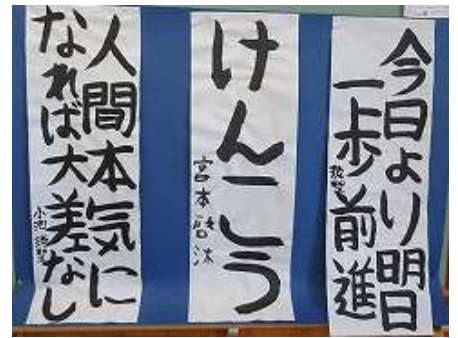 今日より明日
一歩前進
けんこう
宮本
人間本気に
なれば大差なし
小池